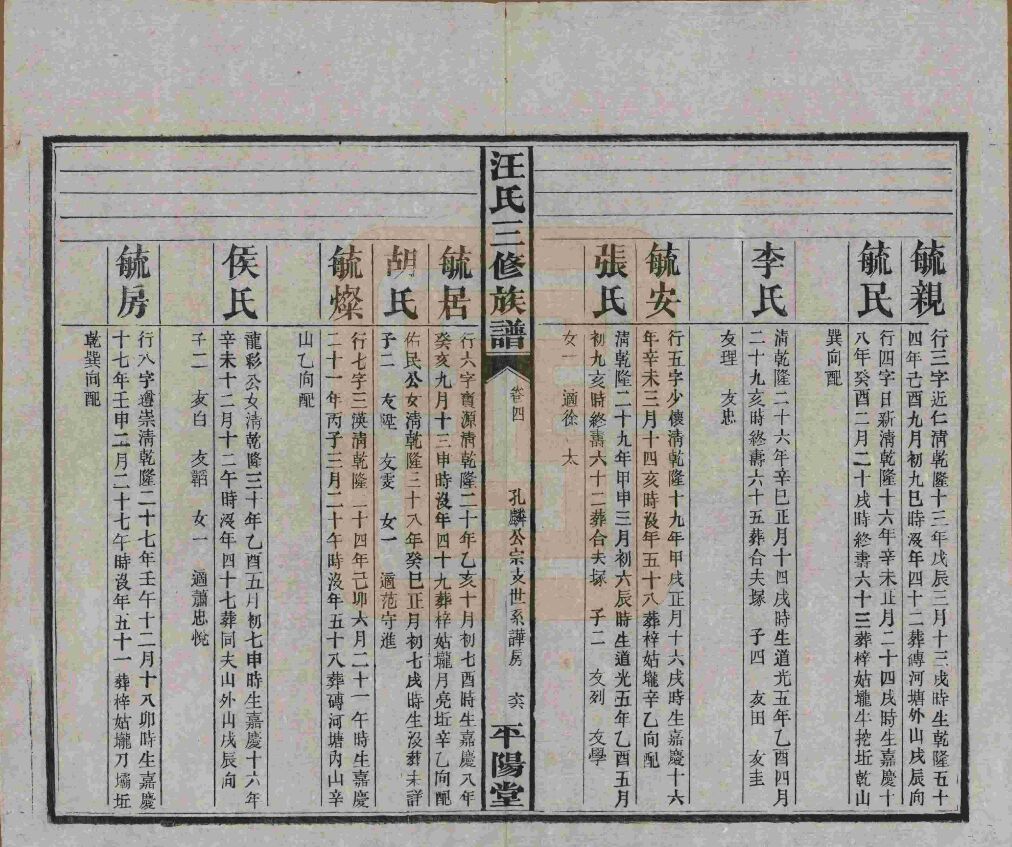 毓親
行三字近仁清乾隆十三年戊辰三月十三戌時生乾隆五十
四年己酉九月初九巳時沒年四十二葬磚河塘外山戌辰向
毓民
行四字日新清乾隆十六年辛未正月二十四戌時生嘉慶十
八年癸酉二月二十戌時終壽六十三葬梓姑壠牛挖坵乾山
巽向配
李氏
清乾隆二十六年辛巳正月十四戌時生道光五年乙酉四月
二十九亥時終壽六十五葬合夫塚 子四 友田 友圭
友理 友忠
毓安
行五字少懷清乾隆十九年甲戌正月十六戌時生嘉慶十六
年辛未三月十四亥時沒年五十八葬梓姑壠辛乙向配
張氏
清乾隆二十九年甲申三月初六辰時生道光五年乙酉五月
初九亥時終壽六十二葬合夫塚 子二 友列 友學
女一 適徐 太
汪氏三修族譜
卷四
孔麟公宗支世系譁房
六
平陽堂
毓居
行六字 源清乾隆二十年乙亥十月初七酉時生嘉慶八年
癸亥九月十三申時沒年四十九葬梓姑壠月亮坵辛乙向配
胡氏
佑民公女清乾隆三十八年癸巳正月初七戌時生沒葬未詳
子二 友陞 友雯 女一 適范守進
毓燦
行七字三漢清乾隆二十四年己卯六月二十一午時生嘉慶
二十一年丙子三月二十午時沒年五十八葬磚河塘內山辛
山乙向配
侯氏
龍彩公女清乾隆三十年乙酉五月初七申時生嘉慶十六年
辛未十二月十二午時沒年四十七葬同夫山外山戌辰向
子二 友白 友韜 女一 適蕭忠悅
毓房
行八字遵崇清乾隆二十七年壬午十二月十八卯時生嘉慶
十七年壬申二月二十七午時沒年五十一葬梓姑壠刀壩坵
乾巽向配